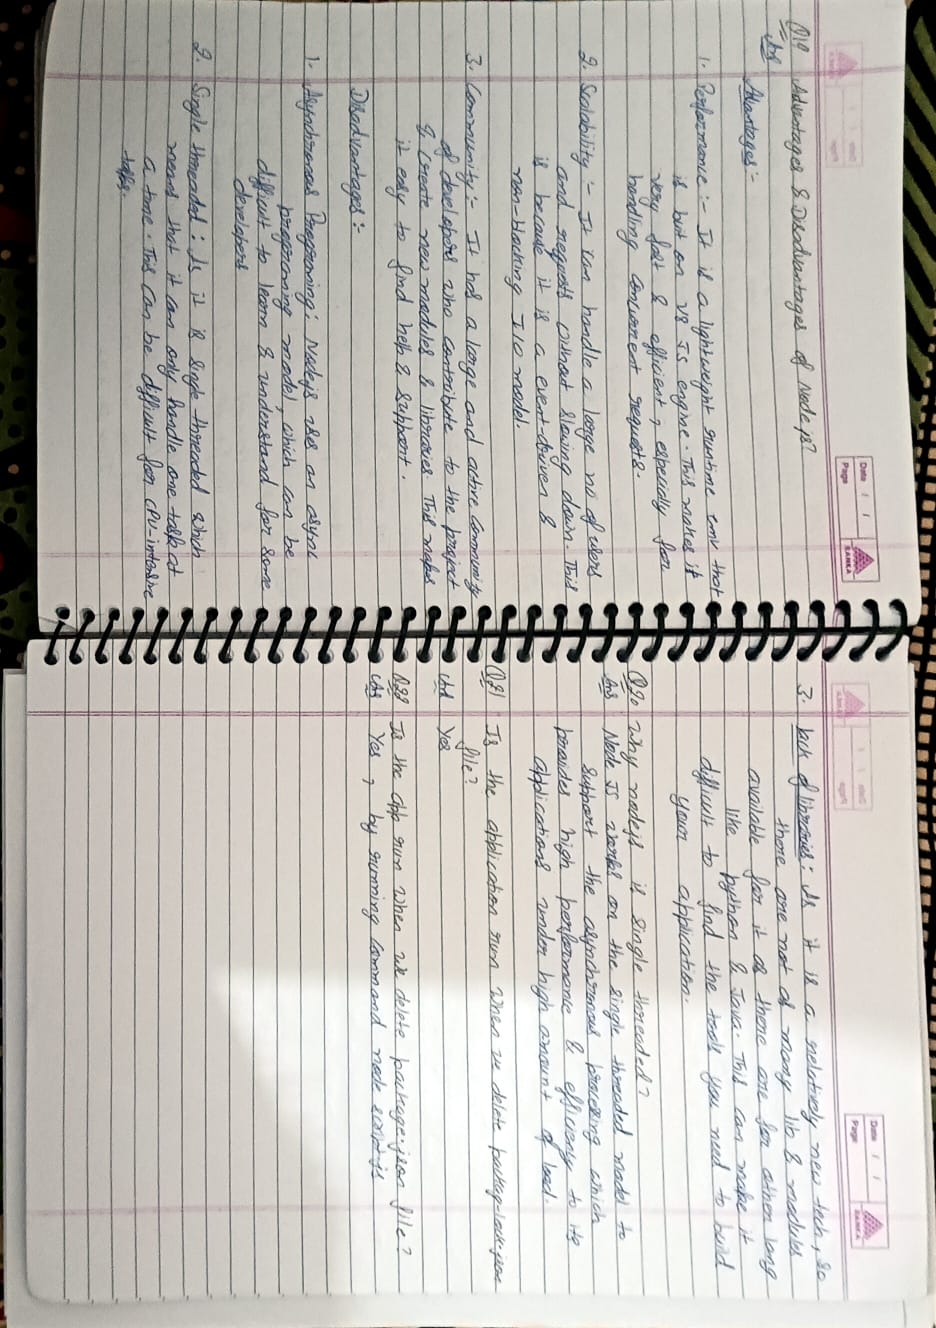 Date / /
Page
SANKA
Q19 Advantages & Disadvantages of Node js?
Ans
Advantages :-
1. Performance :- It is a lightweight runtime env that
is buit on V8 JS engine. This makes it
very fast & efficient, especially for
handling concurrent requests.
2. Scalability :- It can handle a large no of users
and requests without slowing down. This
is because it is a event-driven &
non-blocking I/O model.
3. Community :- It has a large and active community
of developers who contribute to the project
& create new modules & libraries. This makes
it easy to find help & support.
Disadvantages :-
1. Asynchronous Programming : Nodejs uses an async
programming model, which can be
difficult to learn & understand for some
developers
2. Single threaded : As it is single threaded which
means that it can only handle one task at
a time. This can be difficult for CPU-intensive
tasks.
Date / /
Page
SANKA
3. lack of libraries : As it is a relatively new tech, so
there are not as many lib & modules
available for it as there are for other lang
like python & Java. This can make it
difficult to find the tools you need to build
your application.
Q20 Why nodejs is single threaded?
Ans Node JS works on the single threaded model to
support the asynchronous processing which
provides high performance & efficiency to its
applications under high amount of load.
Q21 Is the application run when we delete package-lock.json
file?
Ans Yes
Q22 Is the app run when we delete package.json file?
Ans Yes, by running command node script.js